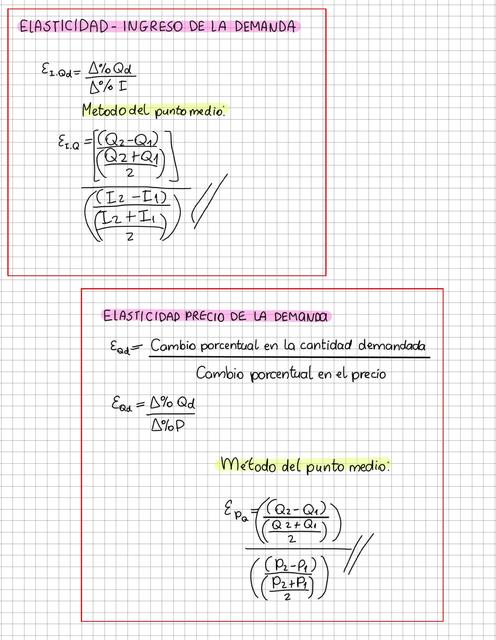 ELASTICIDAD - INGRESO DE LA DEMANDA
ε_I.Qd = Δ% Qd / Δ% I
Metodo del punto medio:
ε_I.Q = [(Q2 - Q1) / ((Q2 + Q1) / 2)] / ((I2 - I1) / ((I2 + I1) / 2)) //
ELASTICIDAD PRECIO DE LA DEMANDA
ε_Qd = Cambio porcentual en la cantidad demandada / Cambio porcentual en el precio
ε_Qd = Δ% Qd / Δ% P
Método del punto medio:
ε_PQ = ((Q2 - Q1) / ((Q2 + Q1) / 2)) / ((P2 - P1) / ((P2 + P1) / 2)) //